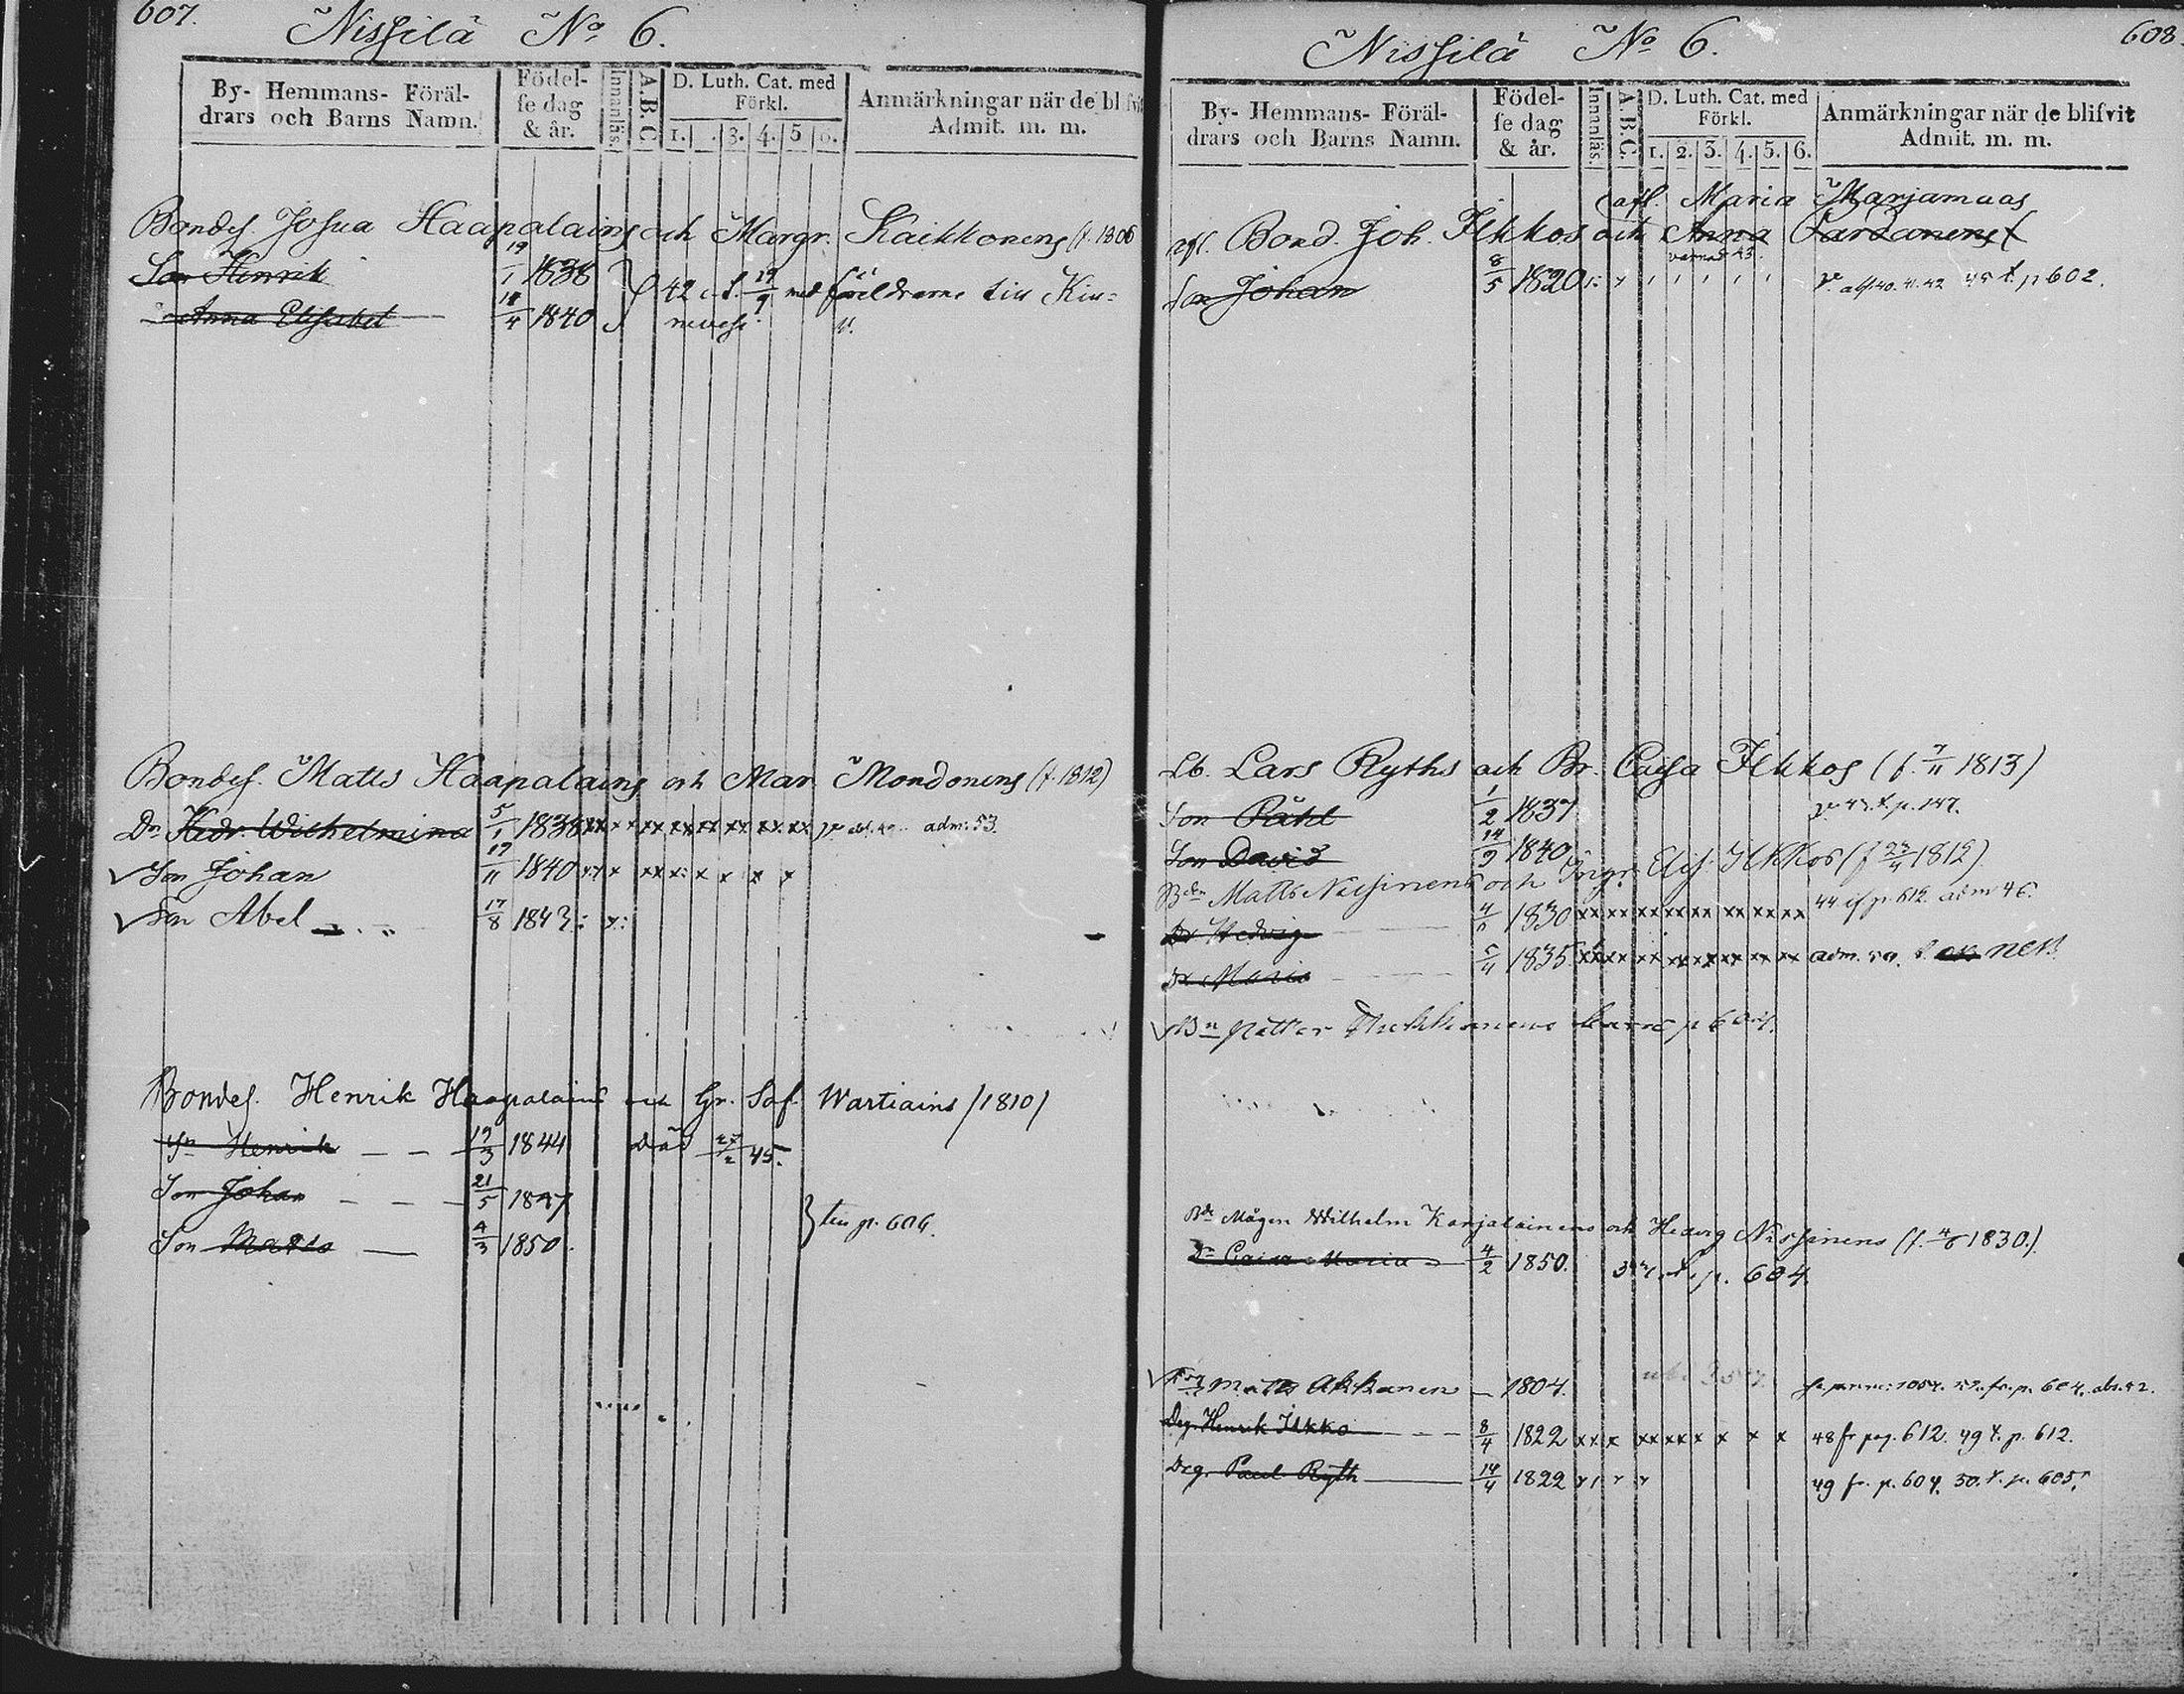 607.
Nissilä No 6.
By- Hemmans- Föräl-
drars och Barns Namn.
Födel-
se dag
& år.
Innanläs.
A.B.C
D. Luth. Cat. med
Förkl.
1. 3. 4. 5 6.
Anmärkningar när de blifvit
Admit. m. m.
Bondes. Josua Haapalains och Margr. Kaikkonens (f. 1806
Son Henrik 19/1 1838 42 d. 19/9 med föräldrarne till Kiu=
Anna Elisabet 18/4 1840
Bondes. Matts Haapalains och Mar. Mondonens (f. 1812)
Dr Hedv. Wilhelmina 5/1 1838 xx x x xx xx xx xx xx xx adm. 53.
Son Johan 17/11 1840 x x x x x x
Son Abel 17/8 1843
Bondes. Henrik Haapalains och Gr. Sof. Wartiains /1810/
Sn Henrik 19/3 1844 Död 27/2 45.
Son Johan 21/5 1847
Son Matts 4/3 1850 till p. 606.
608
Nissilä No 6.
By- Hemmans- Föräl-
drars och Barns Namn.
Födel-
se dag
& år.
Innanläs.
A.B.C.
D. Luth. Cat. med
Förkl.
1. 2. 3. 4. 5. 6.
Anmärkningar när de blifvit
Admit. m. m.
(afl. Maria Marjamaas
afl. Bond. Joh. Ilkkos och Anna Pardanens
Son Johan 8/5 1820 40. 41. 42 45 t. p 602.
Lb. Lars Ryths och Br. Caisa Ilkkos (f. 7/11 1813)
Son Påhl 1/2 1837 43. t. p. 147.
Son David 14/9 1840
Bdn Matts Nissinens och Ingr. Elis. Ilkkos (f 23/4 1812)
Dr Hedvig 4/6 1830 xx xx xx xx xx xx xx xx 44 p. 612. adm 46.
Dr Maria 5/11 1835 xx xx xx xx xx xx xx xx adm. 50.
Bn Petter barn p 604.
Bde Mågen Wilhelm Karjalainens och Hedvig Nissinens (f. 4/6 1830.)
Dr Caisa Maria 4/2 1850. t. p. 604
Matts Akkanen 1804. fr. p. 604. abs. 52.
Drg. Henrik Ilkko 8/4 1822 x x x xx xx x x x x 48 fr pag. 612. 49 t. p. 612.
Drg. Paul Ryth 14/4 1822 49 fr. p. 604. 50. t. p. 605.